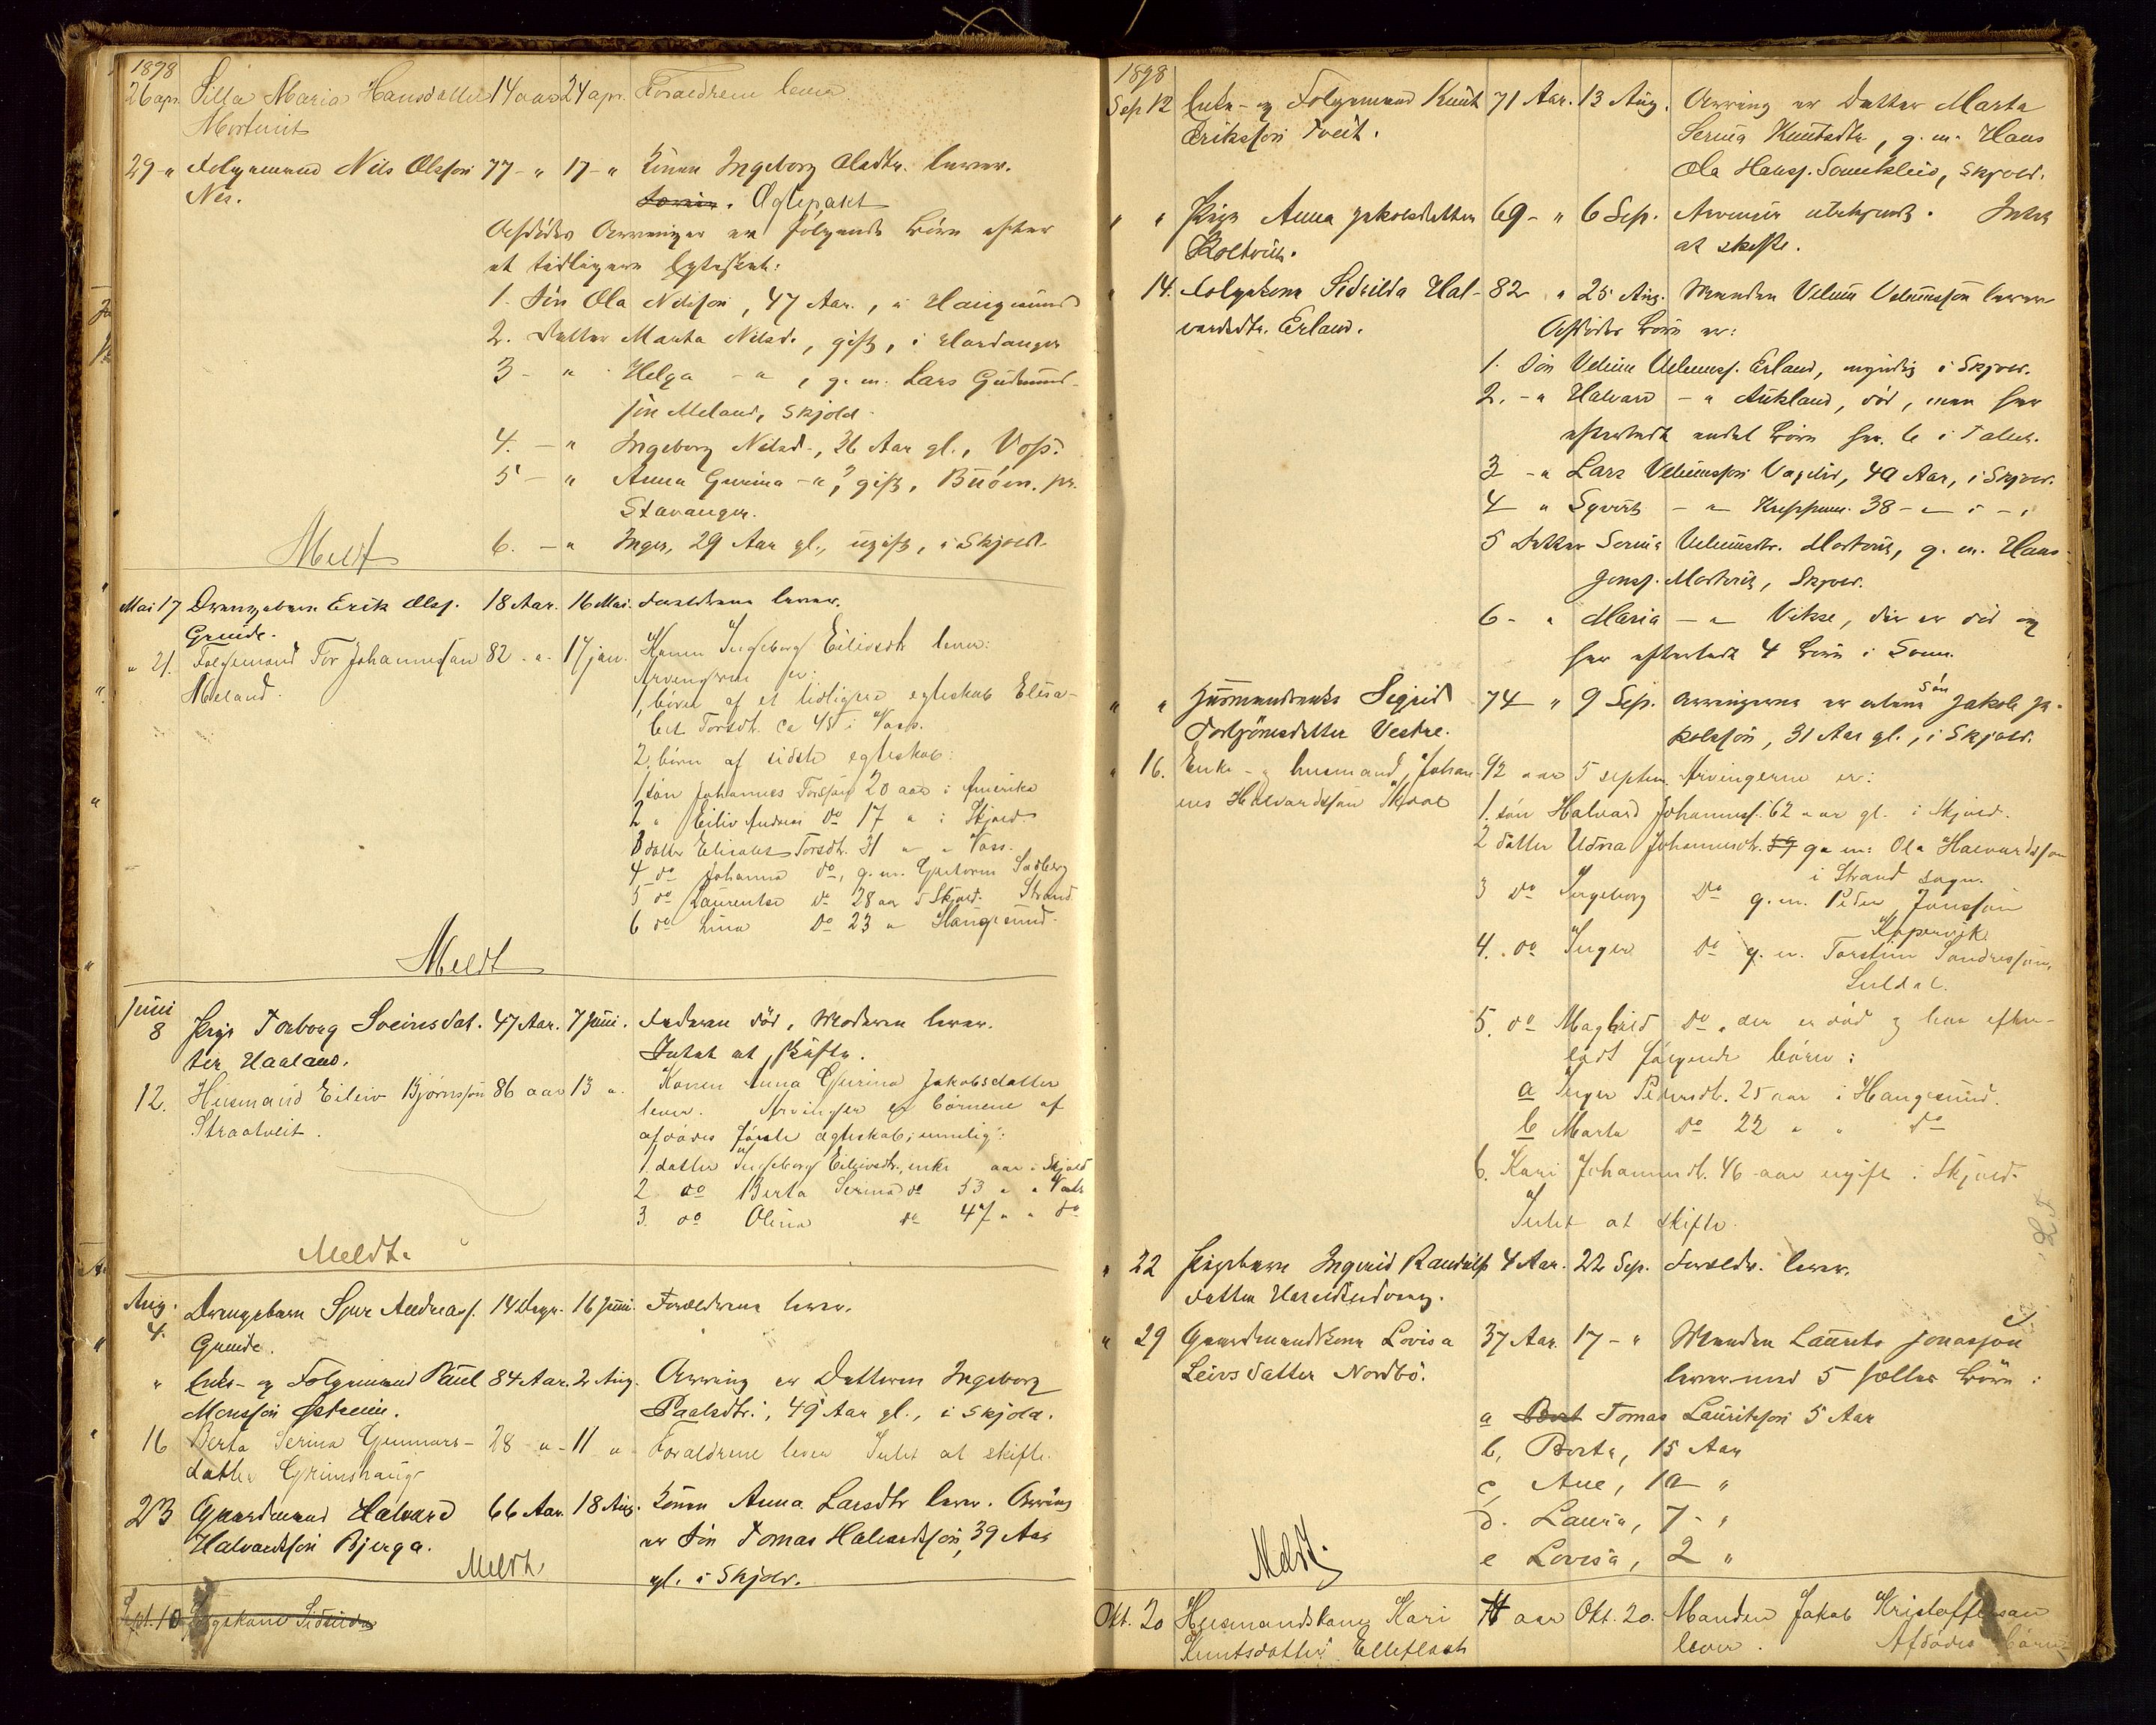 1898
26 apr. Silla Maria Hansdatter 14 aar 24 apr. Forældrene lever
Mortveit
29 - " Folgemand Nils Olsson 77 - " 17 - " Konen Ingeborg Olsdtr. lever.
Nes. Ægtepakt
Afdødes Arvinger er følgende Børn efter
et tidligere Egteskab:
1. Søn Ola Nilsson, 47 Aar., i Haugesund
2. Datter Marta Nilsd., gift, i Hardanger
3 - " Helga - " , g. m. Lars Gudmund-
søn Meland, Skjold.
4. - " Ingeborg Nilsd., 36 Aar gl., Voss.
5 - " Anna Gurina - ", gift, Buøen. pr.
Stavanger.
6. - " Inger, 29 Aar gl., ugift, i Skjold.
Meldt
Mai 17 Drengebarn Erik Olss. 18 Aar. 16 Mai. Forældrene lever.
Grinde.
" 21. Folgemand Tor Johannessøn 82 - " - 17 jan. Konen Ingeborg Eilivsdtr lever:
Meland. Arvingerne er:
1, børn af et tidligere egteskab Elisa-
bet Torsdtr. ca 45 i Voss.
2, børn af sidste egteskab:
1, søn Johannes Torsson 20 aar i Amerika
2 " Eiliv Andreas do 17 " i Skjold.
3 datter Elisabet Torsdtr. 31 " " Voss.
4 do Johanna do, g. m. Guttorm Sadberg
5 do Laurentse do 28 aar i Skjold. Strand
6 do Lina do 23 " Haugesund.
Meldt
Juni
8 Pige Torborg Sveinsdat- 47 Aar. 7 Juni. Faderen død, Moderen lever.
ter Haaland. Intet at skifte.
12. Husmand Eileiv Bjørnsson 86 aar 13 " Konen Anna Gurina Jakobsdatter
Straatveit. lever. Arvinger er børnene af
afdødes første ægteskab; nemlig:
1. datter Ingeborg Eileivsdtr., enke aar i Skjold
2 do Berta Serina do 53 " " Vats
3. do Olina do 47 " " do
Meldt.
Aug.
4. Drengebarn Sjur Andreass. 14 Dage. 16 Juni. Forældrene lever.
Grinde.
" Enke- og Folgemand Paul 84 Aar. 2 Aug. Arving er Datteren Ingeborg
Monsson Østreim. Paalsdtr., 49 Aar gl., i Skjold.
16 Berta Serina Gunnars- 28 " - 11 " Forældrene lever Intet at skifte.
datter Grimshaug
23 Gaardmand Halvard 66 Aar. 18 Aug. Konen Anna Larsdtr lever. Arving
Halvardsson Bjerga. er Søn Tomas Halvardsson, 39 Aar
Meldt gl. i Skjold.
Sept. 10 Folgekone Sidselda
1898
Sep 12 Enke- og Folgemand Knut 71 Aar. 13 Aug. Arving er Datter Marta
Eriksson Tveit. Serina Knutsdtr, g. m. Hans
Ola Hanss. Sømekleiv, Skjold.
" " Pige Anna Jakobsdatter 69 - " 6 Sep. Arvinger ubekjendt. Intet
Skoltveit. at skifte.
" 14. Folgekone Sidsilda Hal- 82 " 25 Aug. Manden Velum Velumsson lever
vardsdtr. Erland. Afdødes Børn er:
1. Søn Velum Velumss. Erland, myndig i Skjold.
2. - " Halvard - " Aukland, død, men har
efterladt endel Børn
3 - " Lars Velumsson Vagslid, 40 Aar, i Skjold.
4 " Syvert - " - 38 - " - i - "
5 Datter Serina Velumsdtr. Mortveit, g. m. Hans
Jonss. Mortveit, Skjold.
6 - " Maria - " - Vikse, der er død og
har efterladt 4 Børn i Sveen.
" " Husmandsenke Sigrid 74 " 9 Sep. Arvingerne er alene Søn Jakob Ja-
Torbjørnsdatter Vestre. kobsson, 31 Aar gl., i Skjold.
" 16. Enke- og husmand, Johan- 92 aar 5 septem. Arvingerne er:
nes Halvardssøn Skjold
1. søn Halvard Johanness. 62 aar gl. i Skjold.
2 datter Udna Johannesdt. 59 g. m. Ola Halvardsson
i Strand sogn.
3 do Ingeborg do g. m. Peder Jonsson
Kopervik
4. do Inger do g. m. Torstein Sondresson,
Suldal.
5. do Maghild do, der er død og har efter-
ladt følgende børn:
a Inger Pedersdt. 25 aar i Haugesund.
b Marta do 22 " " do
6. Kari Johannesdt. 46 aar ugift i Skjold.
Intet at skifte.
" 22 Pigebarn Ingrid Randulfs- 4 Aar. 22 Sep. Forældr. lever.
datter
" 29 Gaardmandskone Lovisa 37 Aar. 17 - " Manden Laurits Jonasson
Leivsdatter Nordbø. lever med 5 fælles Børn:
a Bert Tomas Lauritsson 5 Aar
b, Berta, 15 Aar
c, Ane, 10 "
d. Laura, 7 - "
e Lovisa, 2 "
Meldt.
Okt. 20 Husmandskone Kari aar Okt. 20. Manden Jakob Kristoffersøn
Knutsdatter Elleflaat lever. Afdødes børn